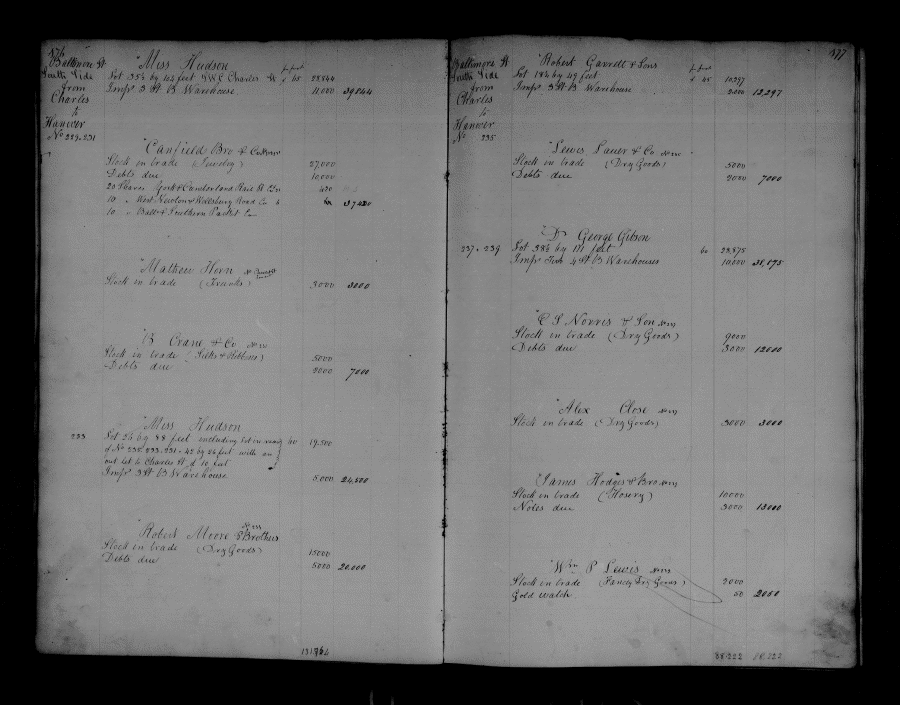 376
Baltimore St
South Side
from
Charles
to
Hanover
No 229-231
Miss Hudson
Lot 35½ by feet Charles St 28,844
Imps 3 St B Warehouse 11,000 39,844
Canfield Bro & Co
Stock in trade (Jewelry) 27,000
Debts due 10,000
20 Shares York & Cumberland Rail R Co 420
10 " West Newton & Road Co
10 " Balto & Southern Packet Co
Mathew Horn
Stock in trade (Trunks) 3000 3000
B Crane & Co
Stock in trade (Silks & Ribbons) 5000
Debts due 2000 7000
233
Miss Hudson
Lot 26 by 88 feet including lot in rear 19,500
of No 235.233.231 - 42 by 26 feet with an
out let to Charles St of 10 feet
Imps 3 St B Warehouse 5,000 24,500
Robert Moore & Brothers
Stock in trade (Dry Goods) 15000
Debts due 5000 20,000
377
Baltimore St
South Side
from
Charles
to
Hanover
No 235
Robert Garrett & Sons
Lot 18½ by 49 feet 45 10,297
Imps 3 St B Warehouse 2000 12,297
Lewis Lauer & Co
Stock in trade (Dry Goods) 5000
Debts due 2000 7000
237-239
Dr George Gibson
Lot 38½ by 111 feet 60
Imps Two 4 St B Warehouses 10,000
C S Norris & Son
Stock in trade (Dry Goods) 9000
Debts due 3000 12000
Alex Close
Stock in trade (Dry Goods) 3000 3000
James Hodges & Bro
Stock in trade (Hosery) 10000
Notes due 3000 13000
Wm P Lewis
Stock in trade (Fancy Dry Goods) 2000
Gold watch 50 2050
88,222